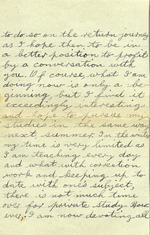 to do so on the return journey
as I hope then to be in
a better position to profit
by a conversation with
you. Of course, what I am
doing now is only a be-
ginning but I find it
exceedingly interesting
and hope to pursue my
studies in the same way
next summer. In the winter
my time is very limited as
I am teaching every day
and what with correction
work and keeping up to
date with one's subject,
there is not much time
over for private study. How-
ever, I am now devoting all